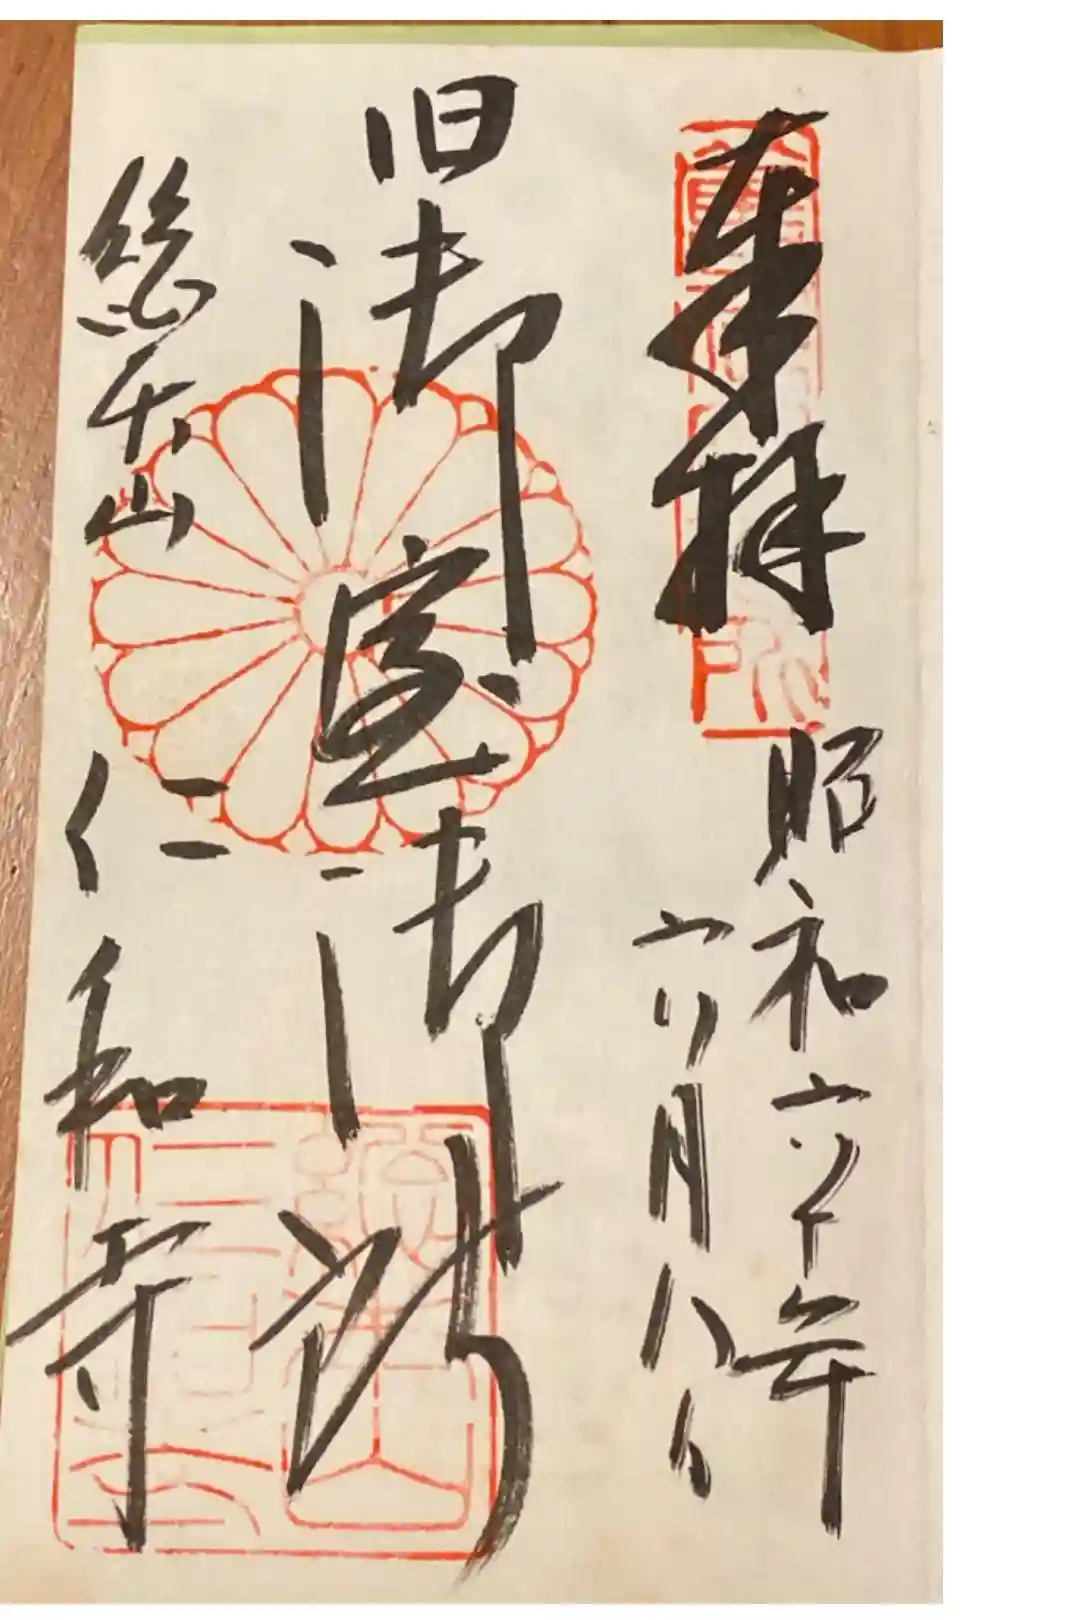 奉拝
昭和六十年
六月八日
旧御室御所
総本山
仁和寺